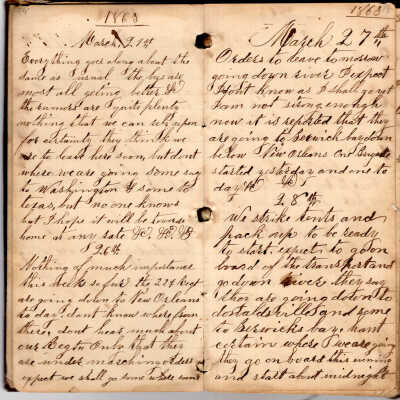 1863
March 21st
Everything goes along about the
same as usual the bys are
most all geting better &c
the rumors are quite plenty
nothing that we can set upon
for certainty they think we
are to leave here soon but dont
where we are going some say
to Washington & some to
texas, but no one knows
but I hope it will be towards
home at any rate &c &c &c
26th
Nothing of much importance
this week so far the 22d Regt
are going down to New Orleans
to day dont know where from
there, dont hear much about
our Regtn Only that they
are under marchin orders
expect we shall go down where some
1863
March 27th
Orders to leave tomorrow
going down river I expect
I dont know as I shall go yet
I am not strong enough
now it is reported that they
are going to Berwick bay down
below New Orleans One Brigade
started yesterday and one to
day &c &c
28th
We strike tents and
pack up to be ready
to start. expect to go on
board of the transport and
go down river, they say
they are going down to
donaldsvill and some
to Berwicks bay, I cant
certain where I we are going
they go on board this evening
and start about midnight